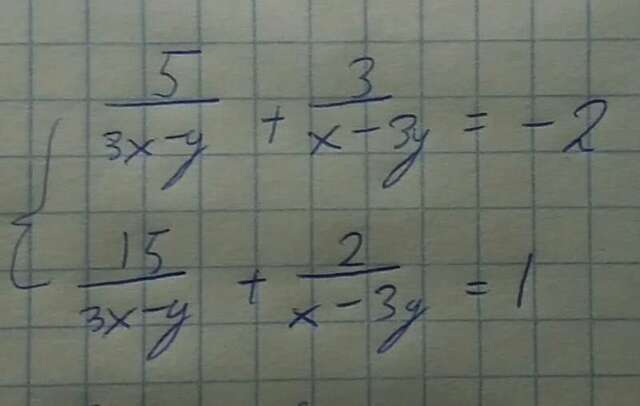 5/(3x-y) + 3/(x-3y) = -2
15/(3x-y) + 2/(x-3y) = 1